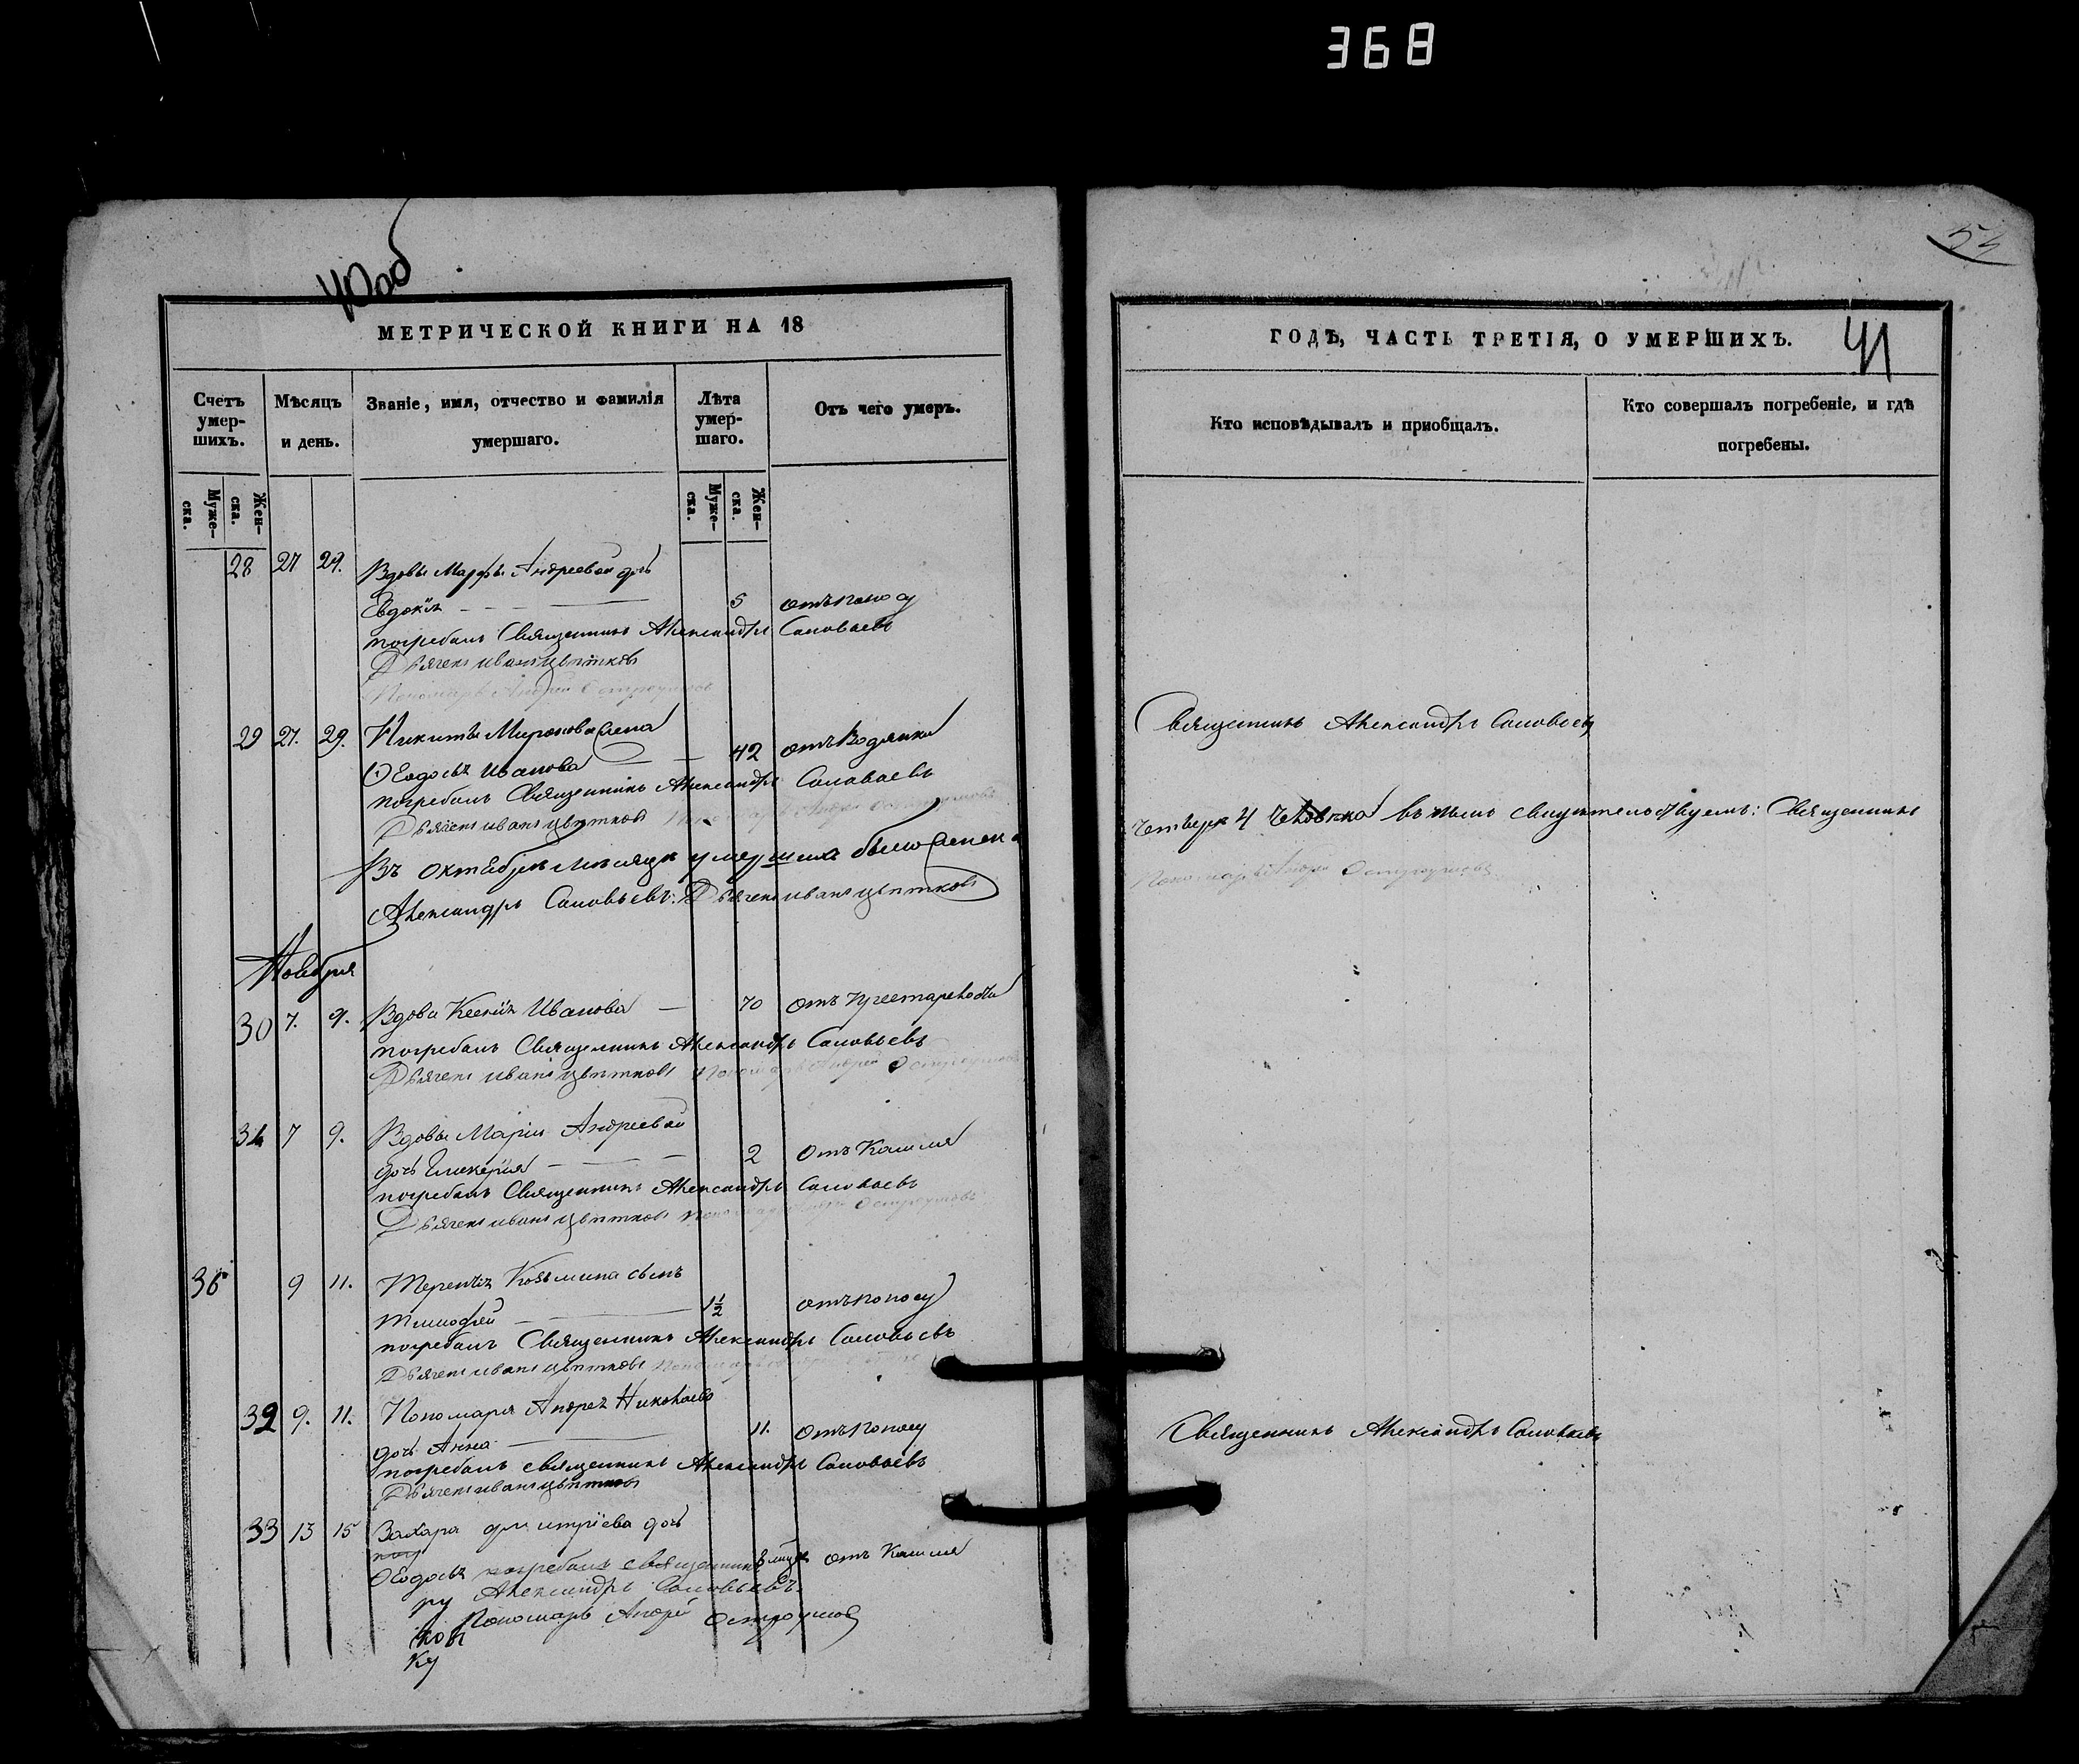 368
40об
МЕТРИЧЕСКОЙ КНИГИ НА 18
Счетъ умер-шихъ.
Мѣсяцъ и день.
Званіе, имя, отчество и фамилія умершаго.
Лѣта умер-шаго.
Отъ чего умеръ.
Муже-ска.
Жен-ска.
Муже-ска.
Жен-ска.
28 27 29. Вдовы Марфы Андреевой дочь
Евдокія 5 отъ поносу
погребалъ Священникъ Александръ Соловьевъ
Дьячекъ Иванъ Цвѣтковъ
Пономарь Андрей Остроумовъ
29 27. 29. Никиты Миронова жена
Ѳеодосья Иванова 42 отъ Водянки
погребалъ Священникъ Александръ Соловьевъ
Дьячекъ Иванъ Цвѣтковъ Пономарь Андрей Остроумовъ
Въ Октябрѣ Мѣсяцѣ умершихъ было
Александръ Соловьевъ: Дьячекъ Иванъ Цвѣтковъ
Ноября
30 7. 9. Вдова Ксенія Иванова 70 отъ престарелости
погребалъ Священникъ Александръ Соловьевъ
Дьячекъ Иванъ Цвѣтковъ Пономарь Андрей Остроумовъ
31 7 9. Вдовы Маріи Андреевой
дочь Гликерія 2 отъ Кашля
погребалъ Священникъ Александръ Соловьевъ
Дьячекъ Иванъ Цвѣтковъ Пономарь Андрей Остроумовъ
36 9 11. Терентія Козьмина сынъ
Тимофей 1½ отъ поносу
погребалъ Священникъ Александръ Соловьевъ
Дьячекъ Иванъ Цвѣтковъ Пономарь
32 9. 11. Пономаря Андрея Николаева
дочь Анна 11. отъ поносу
погребалъ священникъ Александръ Соловьевъ
Дьячекъ Иванъ Цвѣтковъ
33 13 15 Захара Дмитріева дочь
Ѳеодосья погребалъ священникъ отъ Кашля
Александръ Соловьевъ.
Пономарь Андрей Остроумовъ
ку
54
ГОДЪ, ЧАСТЬ ТРЕТІЯ, О УМЕРШИХЪ.
41
Кто исповѣдывалъ и пріобщалъ.
Кто совершалъ погребеніе, и гдѣ погребены.
Священникъ Александръ Соловьевъ
4 человека въ чемъ свидѣтельствуемъ: Священникъ
Пономарь Андрей Остроумовъ
Священникъ Александръ Соловьевъ